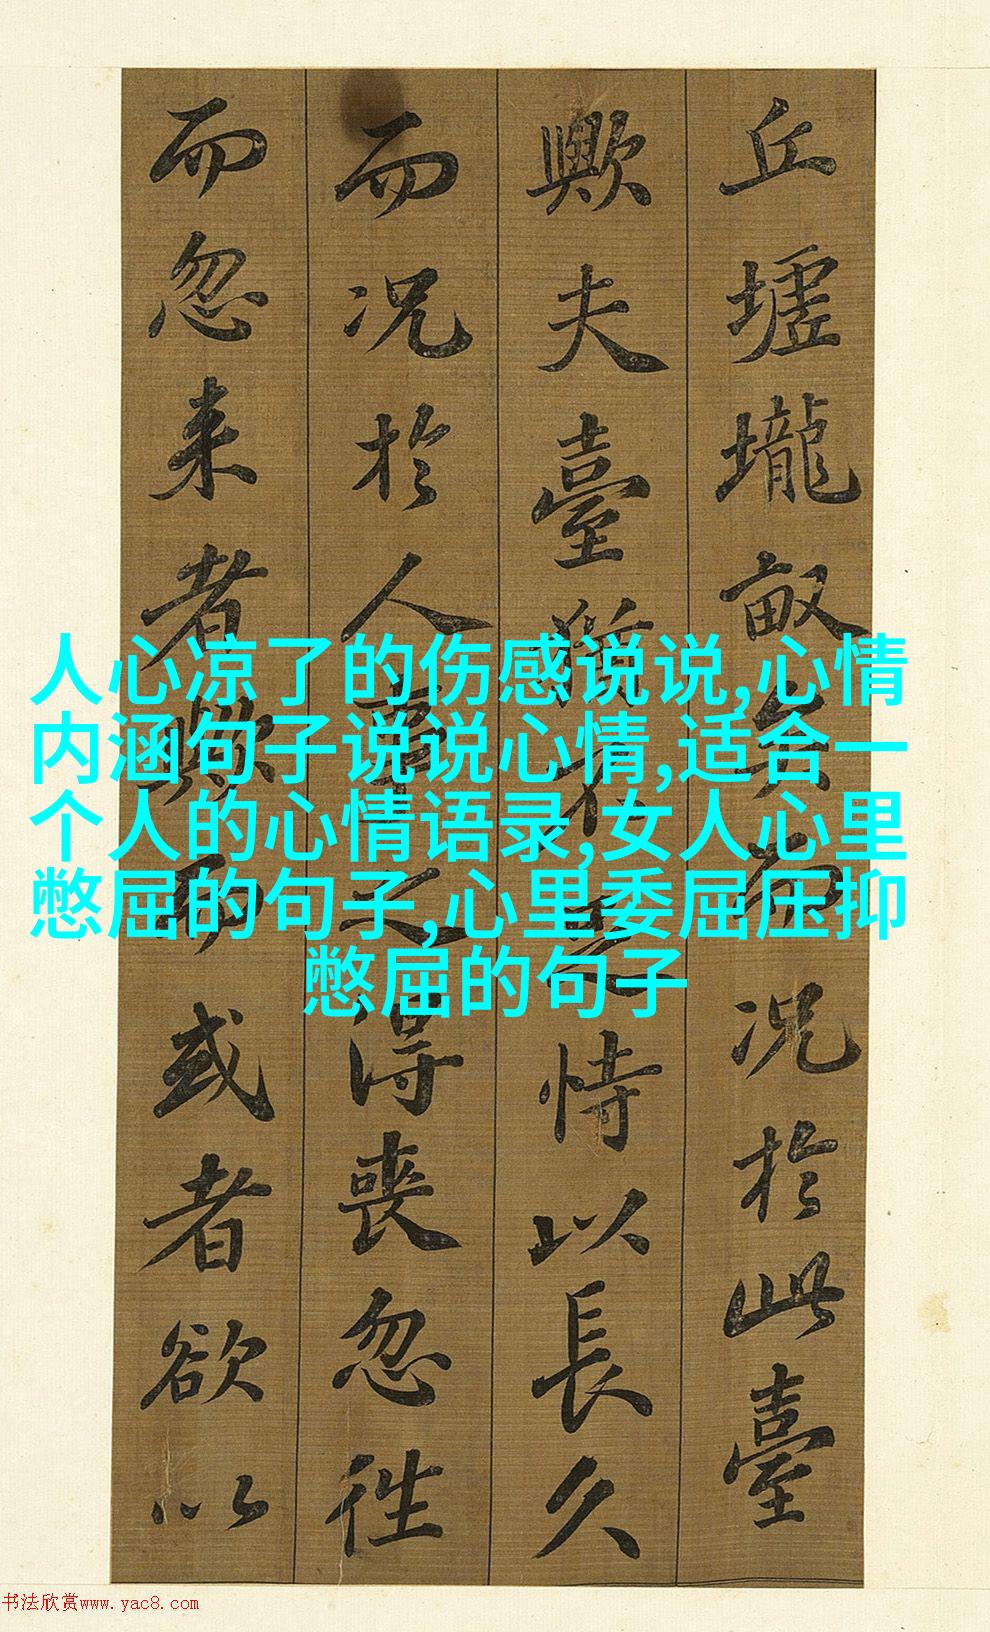 丘墟壠畝矣而况於此臺
歟夫臺猶不足恃以長久
而况於人事之得喪忽往
而忽来者歟而或者欲以
人心凉了的伤感说说,心情
内涵句子说说心情,适合一
个人的心情语录,女人心里
憋屈的句子,心里委屈压抑
憋屈的句子
书法欣赏www.yac8.com